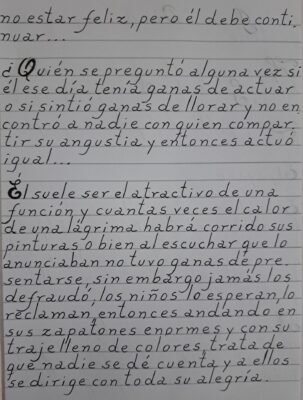 no estar feliz, pero él debe conti-
nuar...
¿Quién se preguntó alguna vez si
él ese día tenía ganas de actuar
o si sintió ganas de llorar y no en
contró a nadie con quien compar
tir su angustia y entonces actuó
igual...
Él suele ser el atractivo de una
función y cuantas veces el calor
de una lágrima habrá corrido sus
pinturas o bien al escuchar que lo
anunciaban no tuvo ganas de pre-
sentarse, sin embargo jamás los
defraudó, los niños lo esperan, lo
reclaman, entonces andando en
sus zapatones enormes y con su
traje lleno de colores, trata de
que nadie se dé cuenta y a ellos
se dirige con toda su alegría.